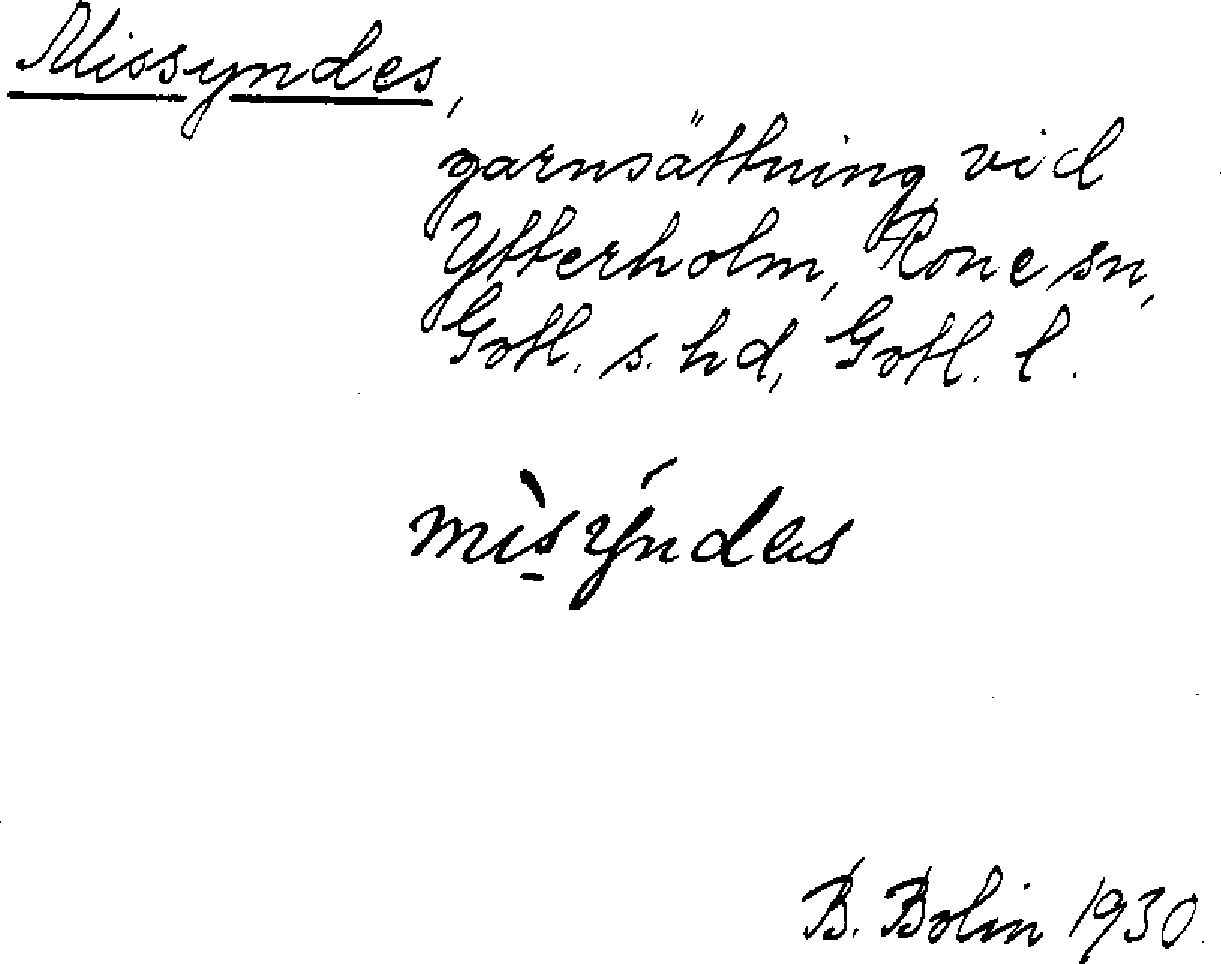 Missyndes,
garnsättning vid
Ytterholm, Rone sn,
Gotl. s. hd, Gotl. l.
mìsýndas
B. Bolin 1930.